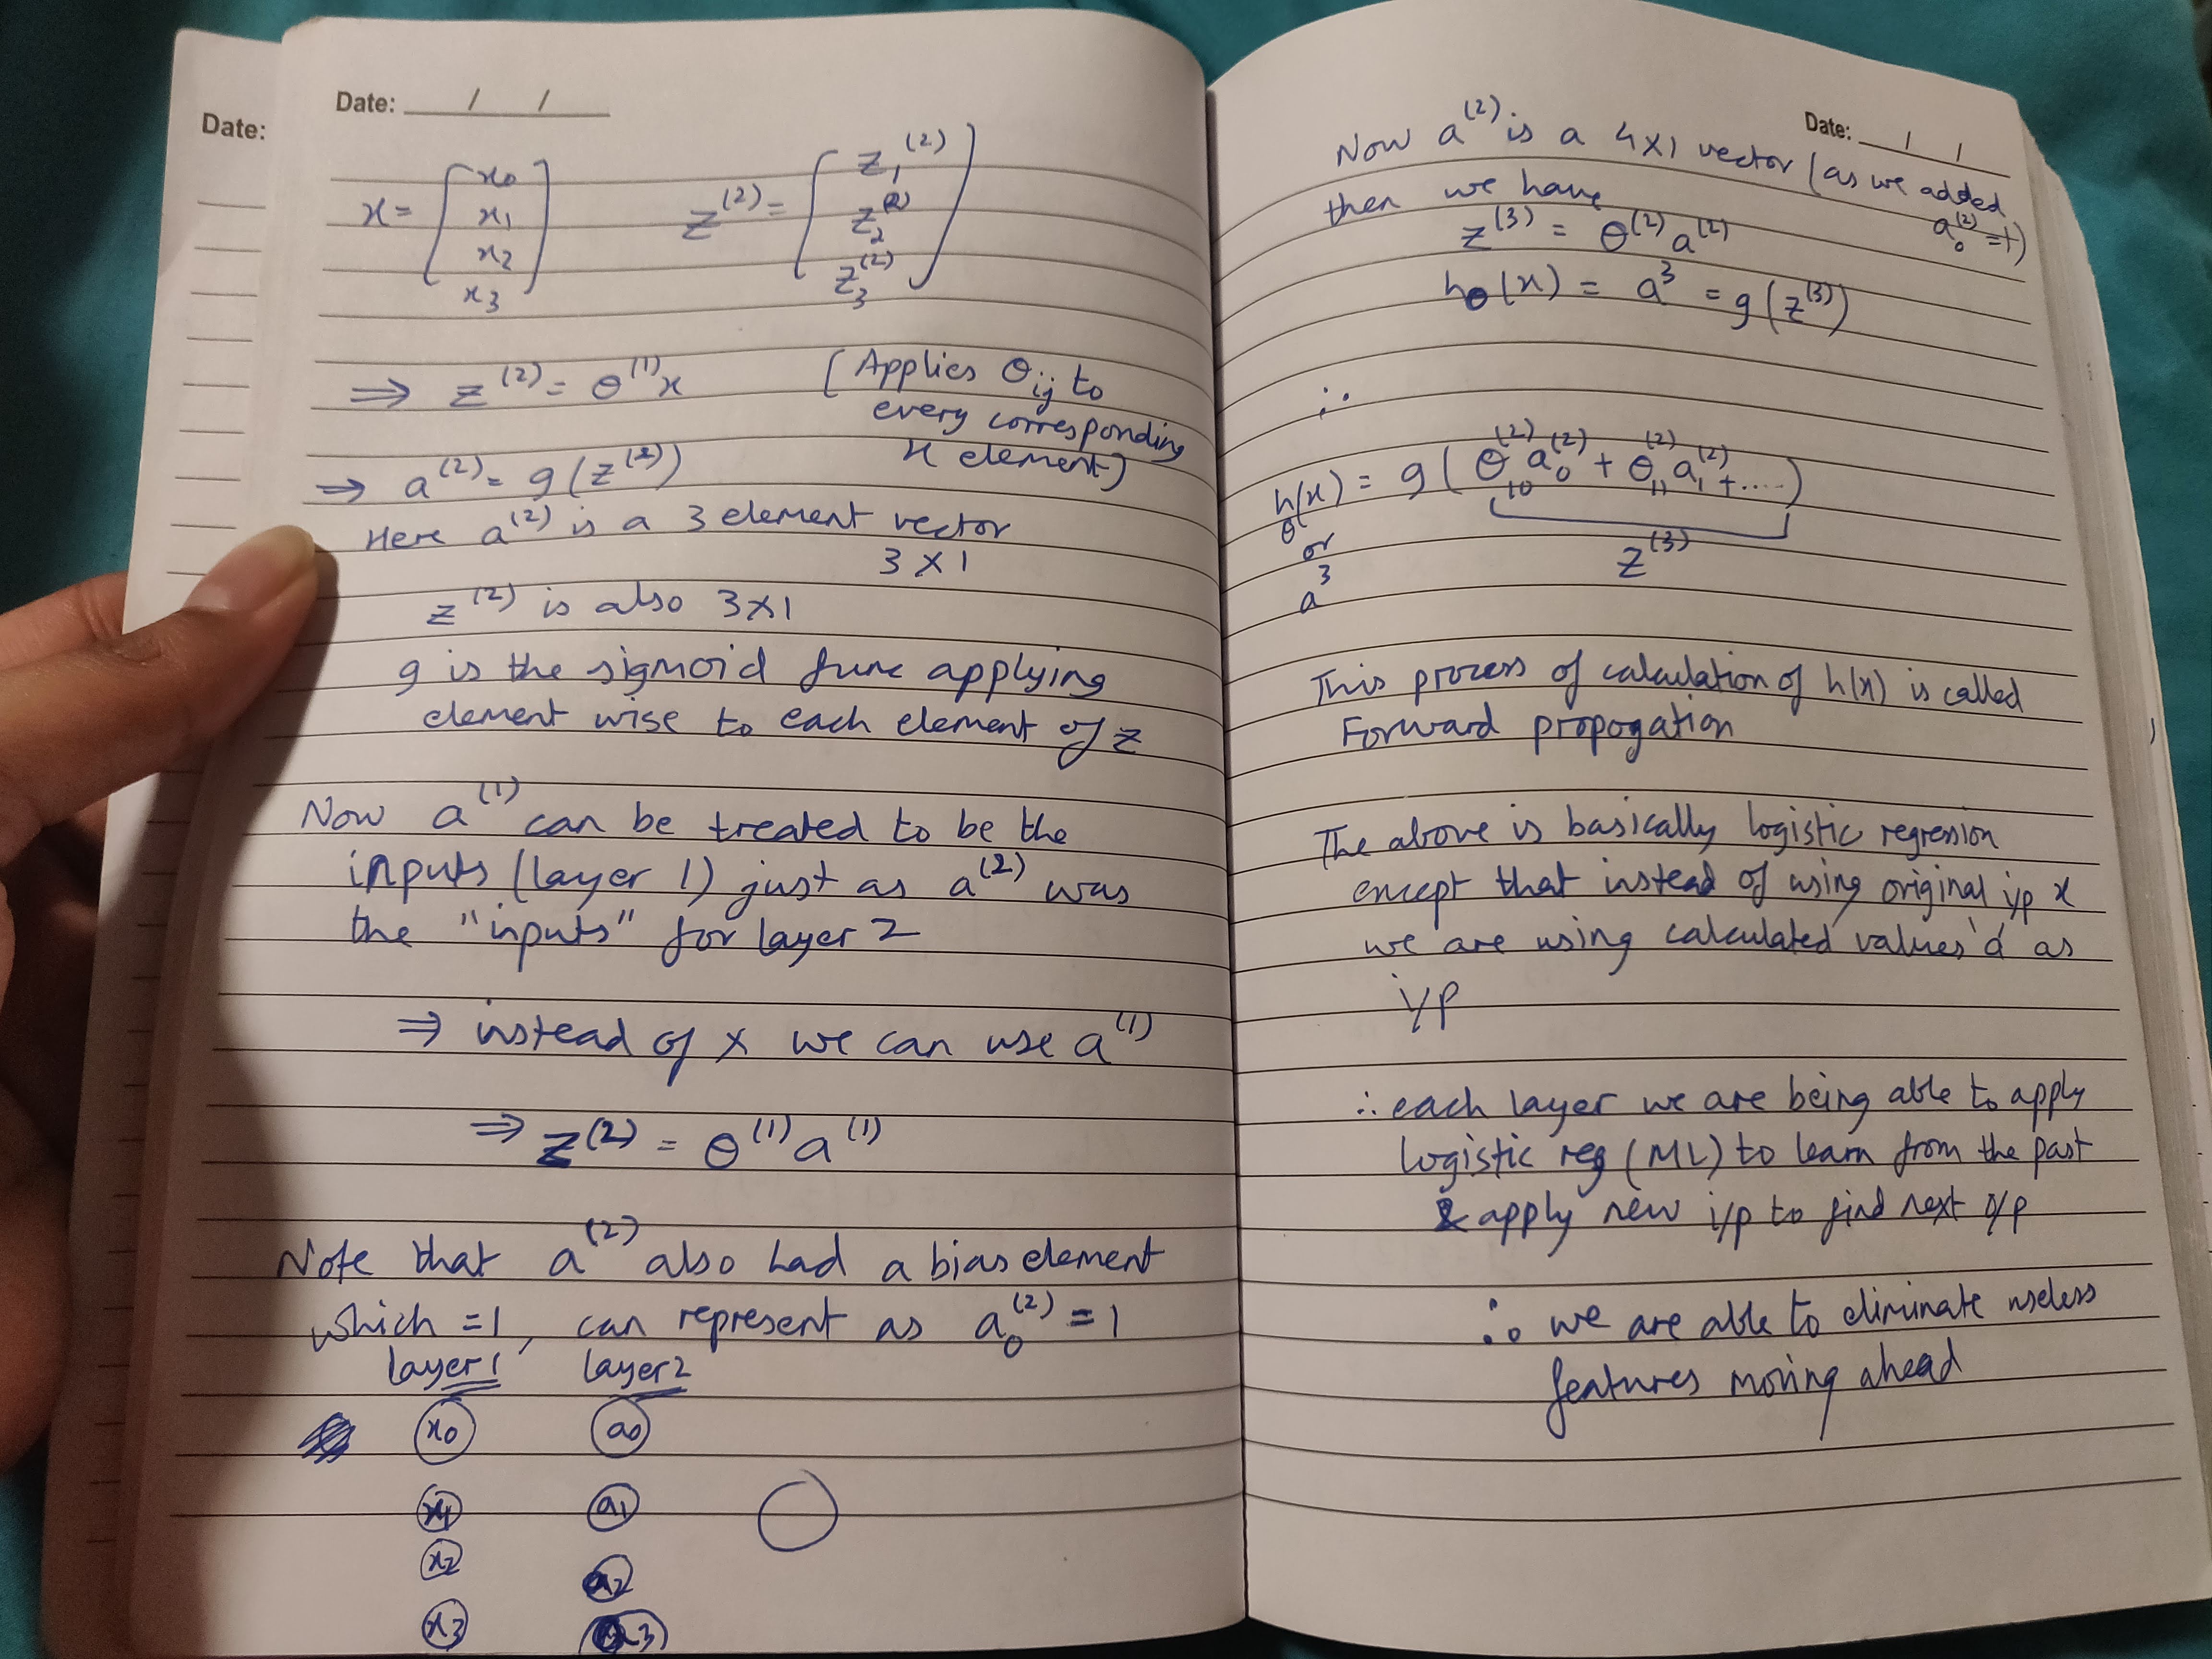 Date:
Date: / /
x = [ x0 x1 x2 x3 ]   z^(2) = [ z1^(2) z2^(2) z3^(2) ]
⇒ z^(2) = θ^(1)x   (Applies θij to
every corresponding
x element)
⇒ a^(2) = g(z^(2))
Here a^(2) is a 3 element vector
3 x 1
z^(2) is also 3x1
g is the sigmoid func applying
element wise to each element of z
Now a^(1) can be treated to be the
inputs (layer 1) just as a^(2) was
the "inputs" for layer 2
⇒ instead of x we can use a^(1)
⇒ z^(2) = θ^(1)a^(1)
Note that a^(2) also had a bias element
which =1, can represent as a0^(2) = 1
layer 1   layer 2
x0   a0
x1   a1
x2   a2
x3   a3
Date: / /
Now a^(2) is a 4x1 vector (as we added
a0^(2) =1)
then we have
z^(3) = θ^(2)a^(2)
hθ(x) = a^3 = g(z^(3))
∴
hθ(x) = g(θ10^(2)a0^(2) + θ11^(2)a1^(2) + ....)
or
a^3
z^(3)
This process of calculation of h(x) is called
Forward propogation
The above is basically logistic regression
except that instead of using original i/p x
we are using calculated values 'a' as
i/p
∴ each layer we are being able to apply
logistic reg (ML) to learn from the past
& apply new i/p to find next o/p
∴ we are able to eliminate useless
features moving ahead